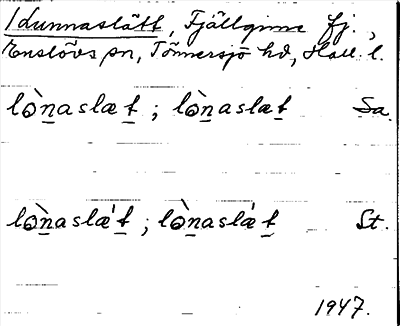 Idunnaslätt, Fjällginne fj.,
Enslövs sn, Tönnersjö hd, Hall. l.
lònaslæt ; lònaslæt Sa.
lònaslæ't ; lònaslæ't St.
1947.